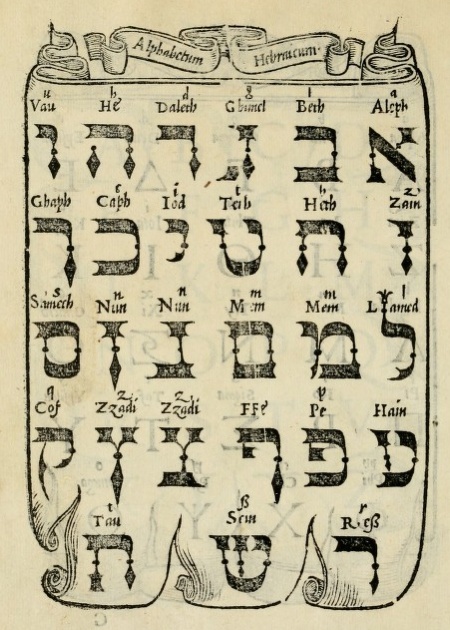 Alphabetum Hebraicum.
u h d g b a
Vau He Daleth Ghimel Beth Aleph
א ב ג ד ה ו
c i t h z
Ghaph Caph Iod Teth Heth Zain
ז ח ט י כ ך
s n n m m l
Samech Nun Nun Mem Mem Lamed
ל מ ם נ ן ס
q z z p
Cof Zzadi Zzadi FFe Pe Hain
ע פ ף צ ץ ק
t ß r
Tau Scin Reß
ר ש ת